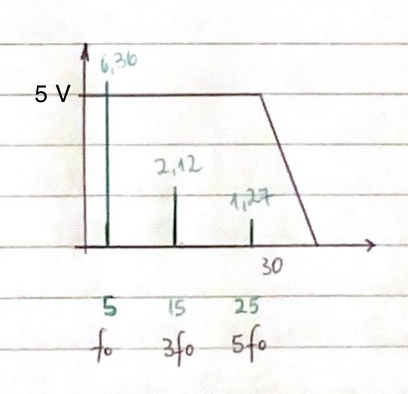 6,36
5 V
2,12
1,27
30
5 15 25
fo 3fo 5fo